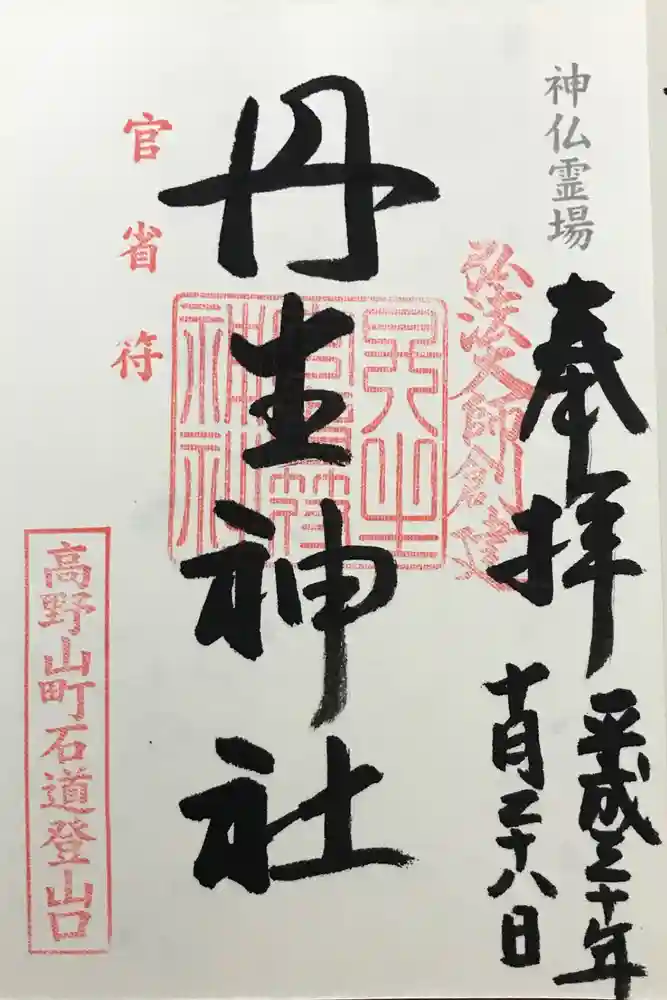 神仏霊場
奉拝
平成三十年
十月二十八日
弘法大師創建
丹生神社
丹生官省符神社
官省符
高野山町石道登山口